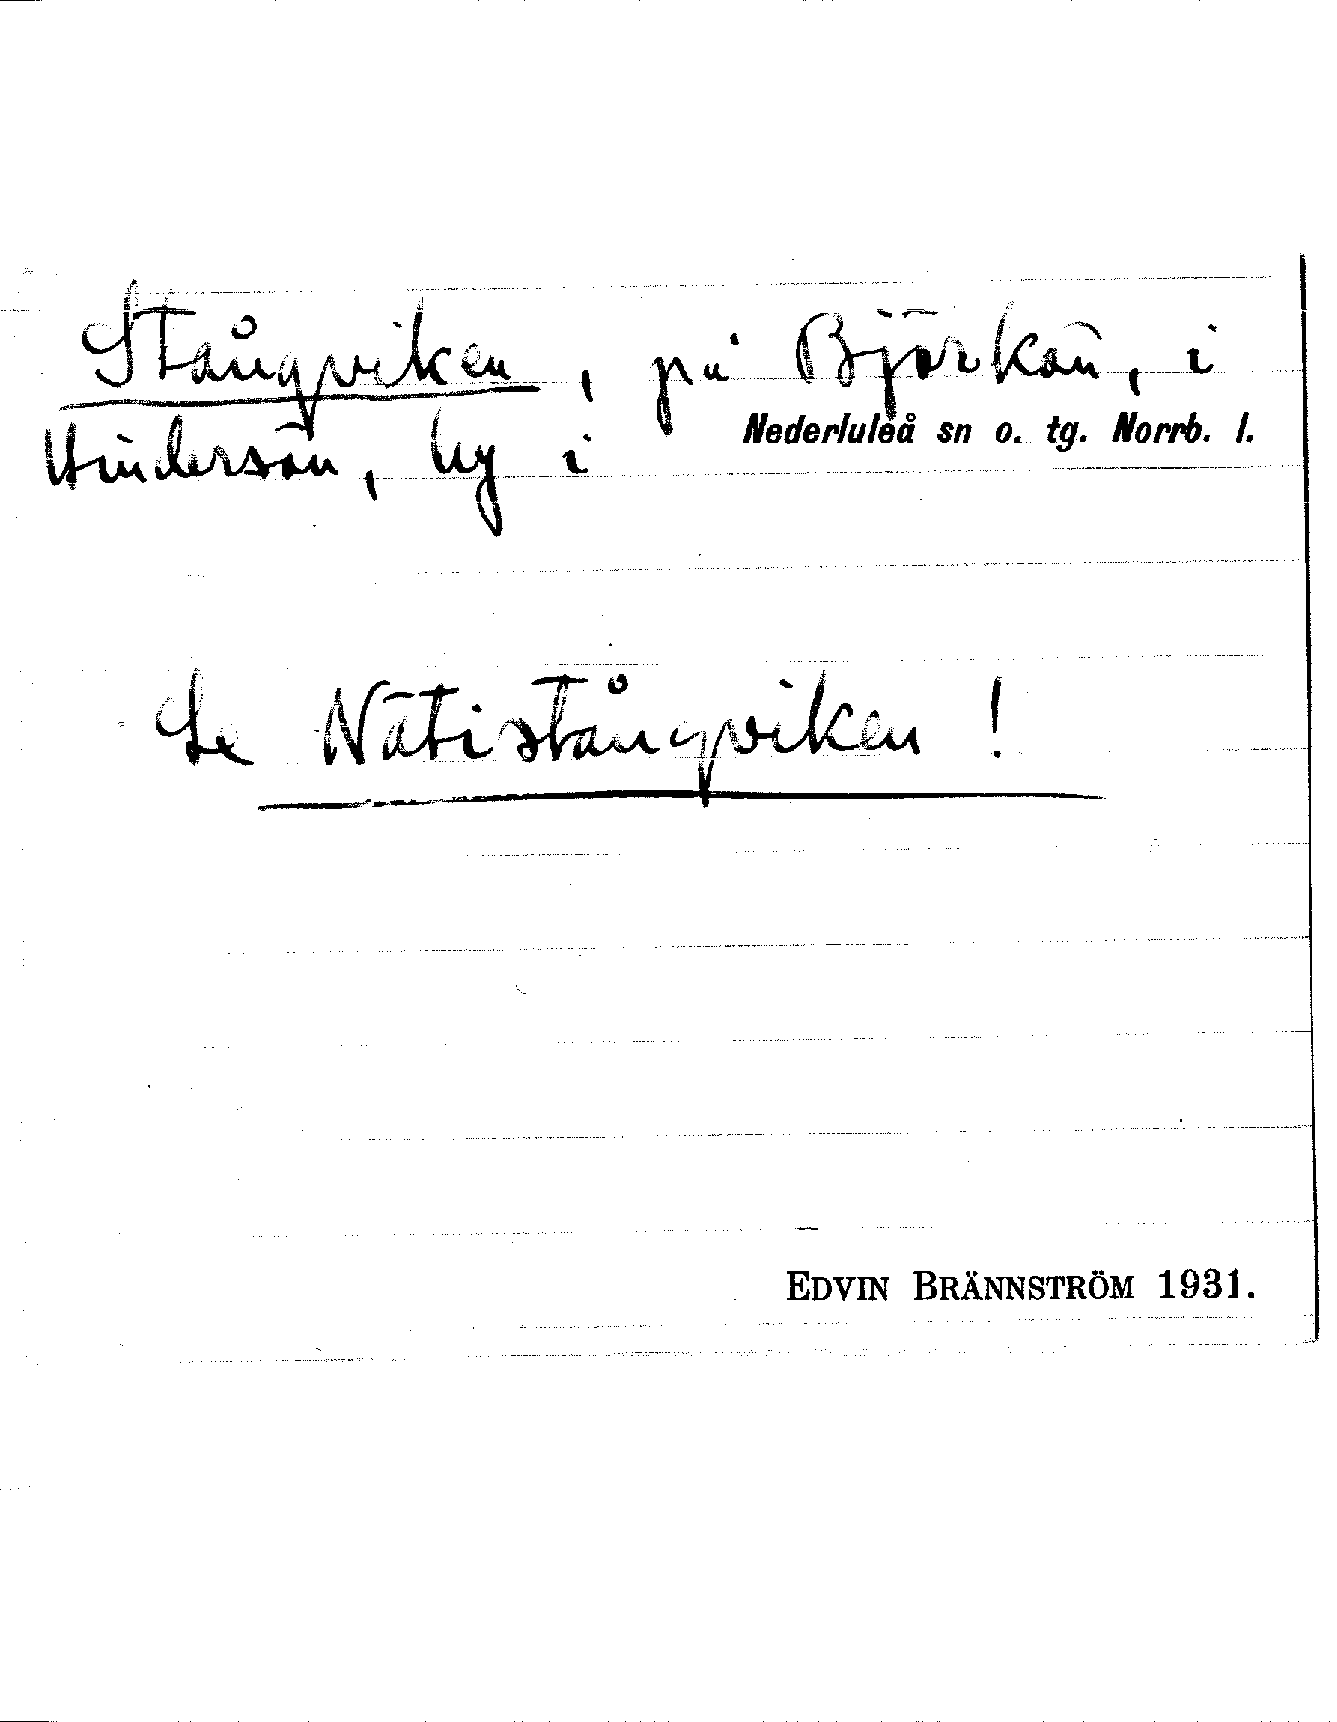 Stångviken, på Björkön, i
Hindersön, by i Nederluleå sn o. tg. Norrb. l.
Se Nätistångviken!
EDVIN BRÄNNSTRÖM 1931.